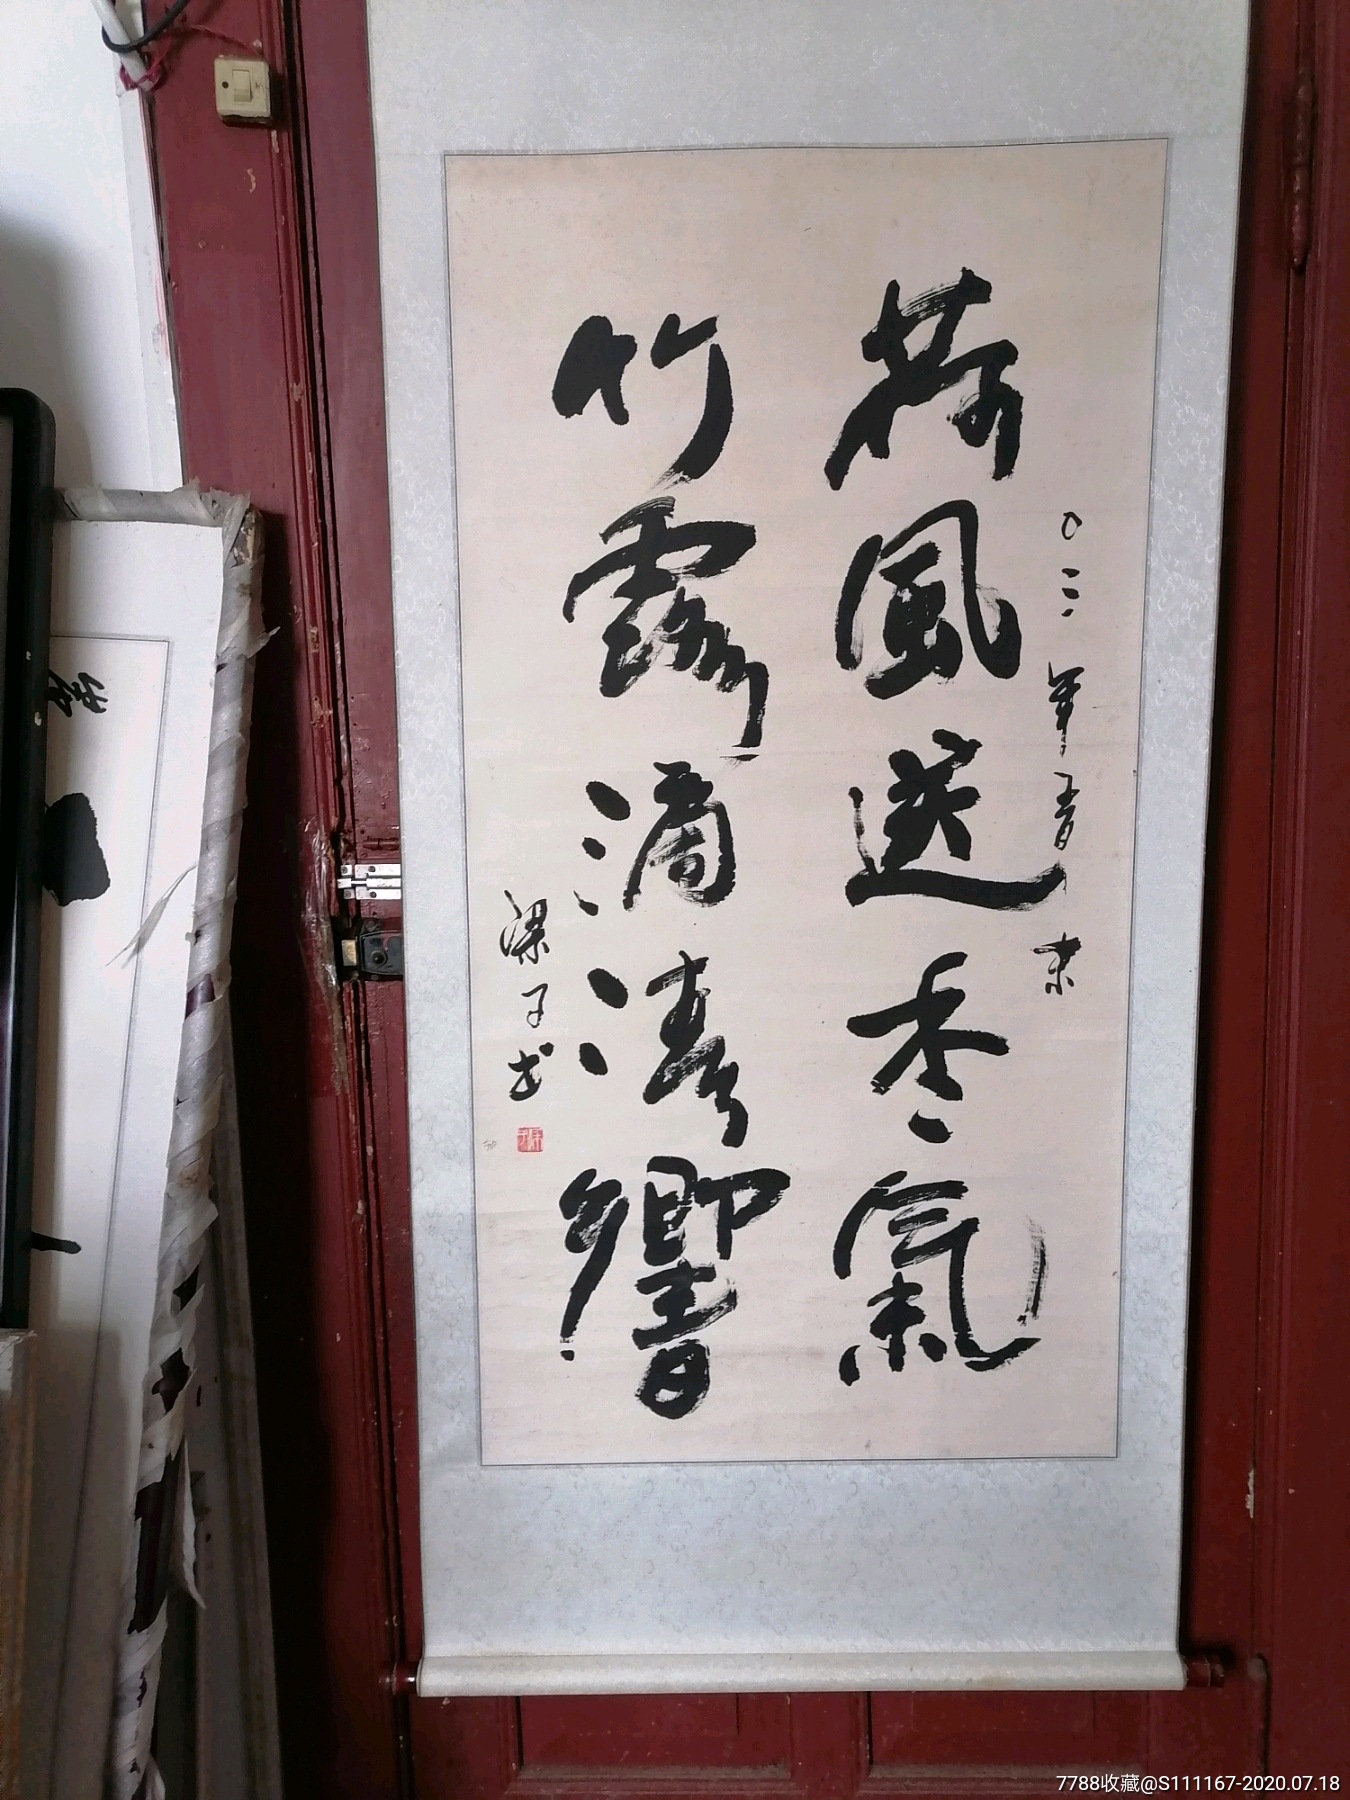 荷風送香氣
竹露滴清響
梁子书
7788收藏@S111167-2020.07.18